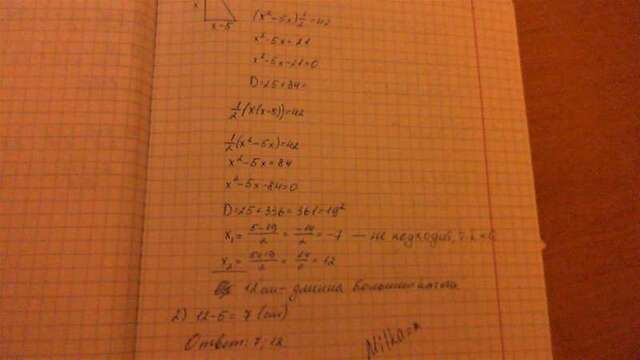 x
x-5
(x²-5x)½=42
x²-5x=21
x²-5x-21=0
D=25+84=
½(x(x-5))=42
½(x²-5x)=42
x²-5x=84
x²-5x-84=0
D=25+336=361=19²
x₁=(5-19)/2=(-14)/2=-7 — не подходит, т.к.
x₂=(5+19)/2=24/2=12
12 см - длинна большего катета
2) 12-5=7 (см)
Ответ: 7; 12
Milka